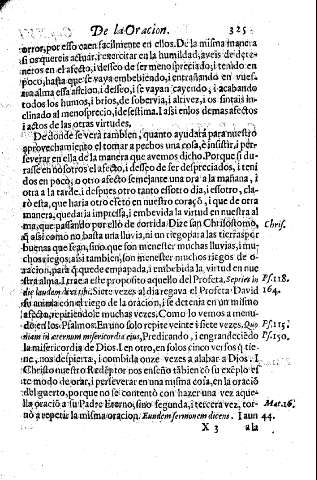 De la Oracion. 325
orror, por esso caen facilmente en ellos. De la misma manera
si os quereis actuar, i exercitar en la humildad, aveis de dete-
neros en el afecto, i desseo de ser menospreciado; i tenido en
poco, hasta que se vaya embebiendo, i entrañando en vues-
tra alma essa aficion, i desseo, i se vayan cayendo, i acabando
todos los humos, i brios, de sobervia, i altivez, i os sintais in-
clinado al menosprecio, i desestima. I assi en los demas afectos
i actos de las otras virtudes.
De donde se verà tambien, quanto ayudarà para nuestro
aprovechamiento el tomar a pechos una cosa, è insistir, i per-
severar en ella de la manera que avemos dicho. Porque si du-
rasse en nosotros el afecto, i desseo de ser despreciados, i teni
dos en poco, o otro afecto semejante una ora a la mañana, i
otra a la tarde, i despues otro tanto essotro dia, i essotro, cla-
ro esta, que haria otro efeto en nuestro coraçō, i que de otra
manera, quedaria impressa, i embevida la virtud en nuestra al
ma, que passando por ello de corrida. Dize san Chrisostomo, Chris.
q̃ assi como no basta una lluvia, ni un riego para las tierras por
buenas que sean, sino que son menester muchas lluvias, i mu-
chos riegos; assi tambien, son menester muchos riegos de o-
racion, para q̃ quede empapada, i embebida la virtud en nue
stra alma. I trae a este proposito aquello del Profeta. Septies in Ps. 118.
die laudem dixi tibi. Siete vezes al dia regava el Profeta David 164.
su anima con el riego de la oracion, i se detenia en un mismo
afecto, repitiendole muchas vezes. Como lo vemos a menu-
do en los Psalmos. En uno solo repite veinte i siete vezes. Quo Ps. 135.
niam in æternum misericordia eius, Predicando, i engrandeciẽdo Ps. 150.
la misericordia de Dios. I en otro, en solos cinco versos q̃ tie-
ne, nos despierta, i combida onze vezes a alabar a Dios. I
Christo nuestro Redẽptor nos enseñò tãbien cõ su exẽplo es
te modo de orar, i perseverar en una misma cosa, en la oraciō
del guerto, porque no se contentò con hazer una vez aque-
lla oraciō a su Padre Eterno, sino segunda, i tercera vez, tor- Mat. 26.
nò a repetir la misma oracion. Eundem sermonem dicens. I aun 44.
X 3 a la